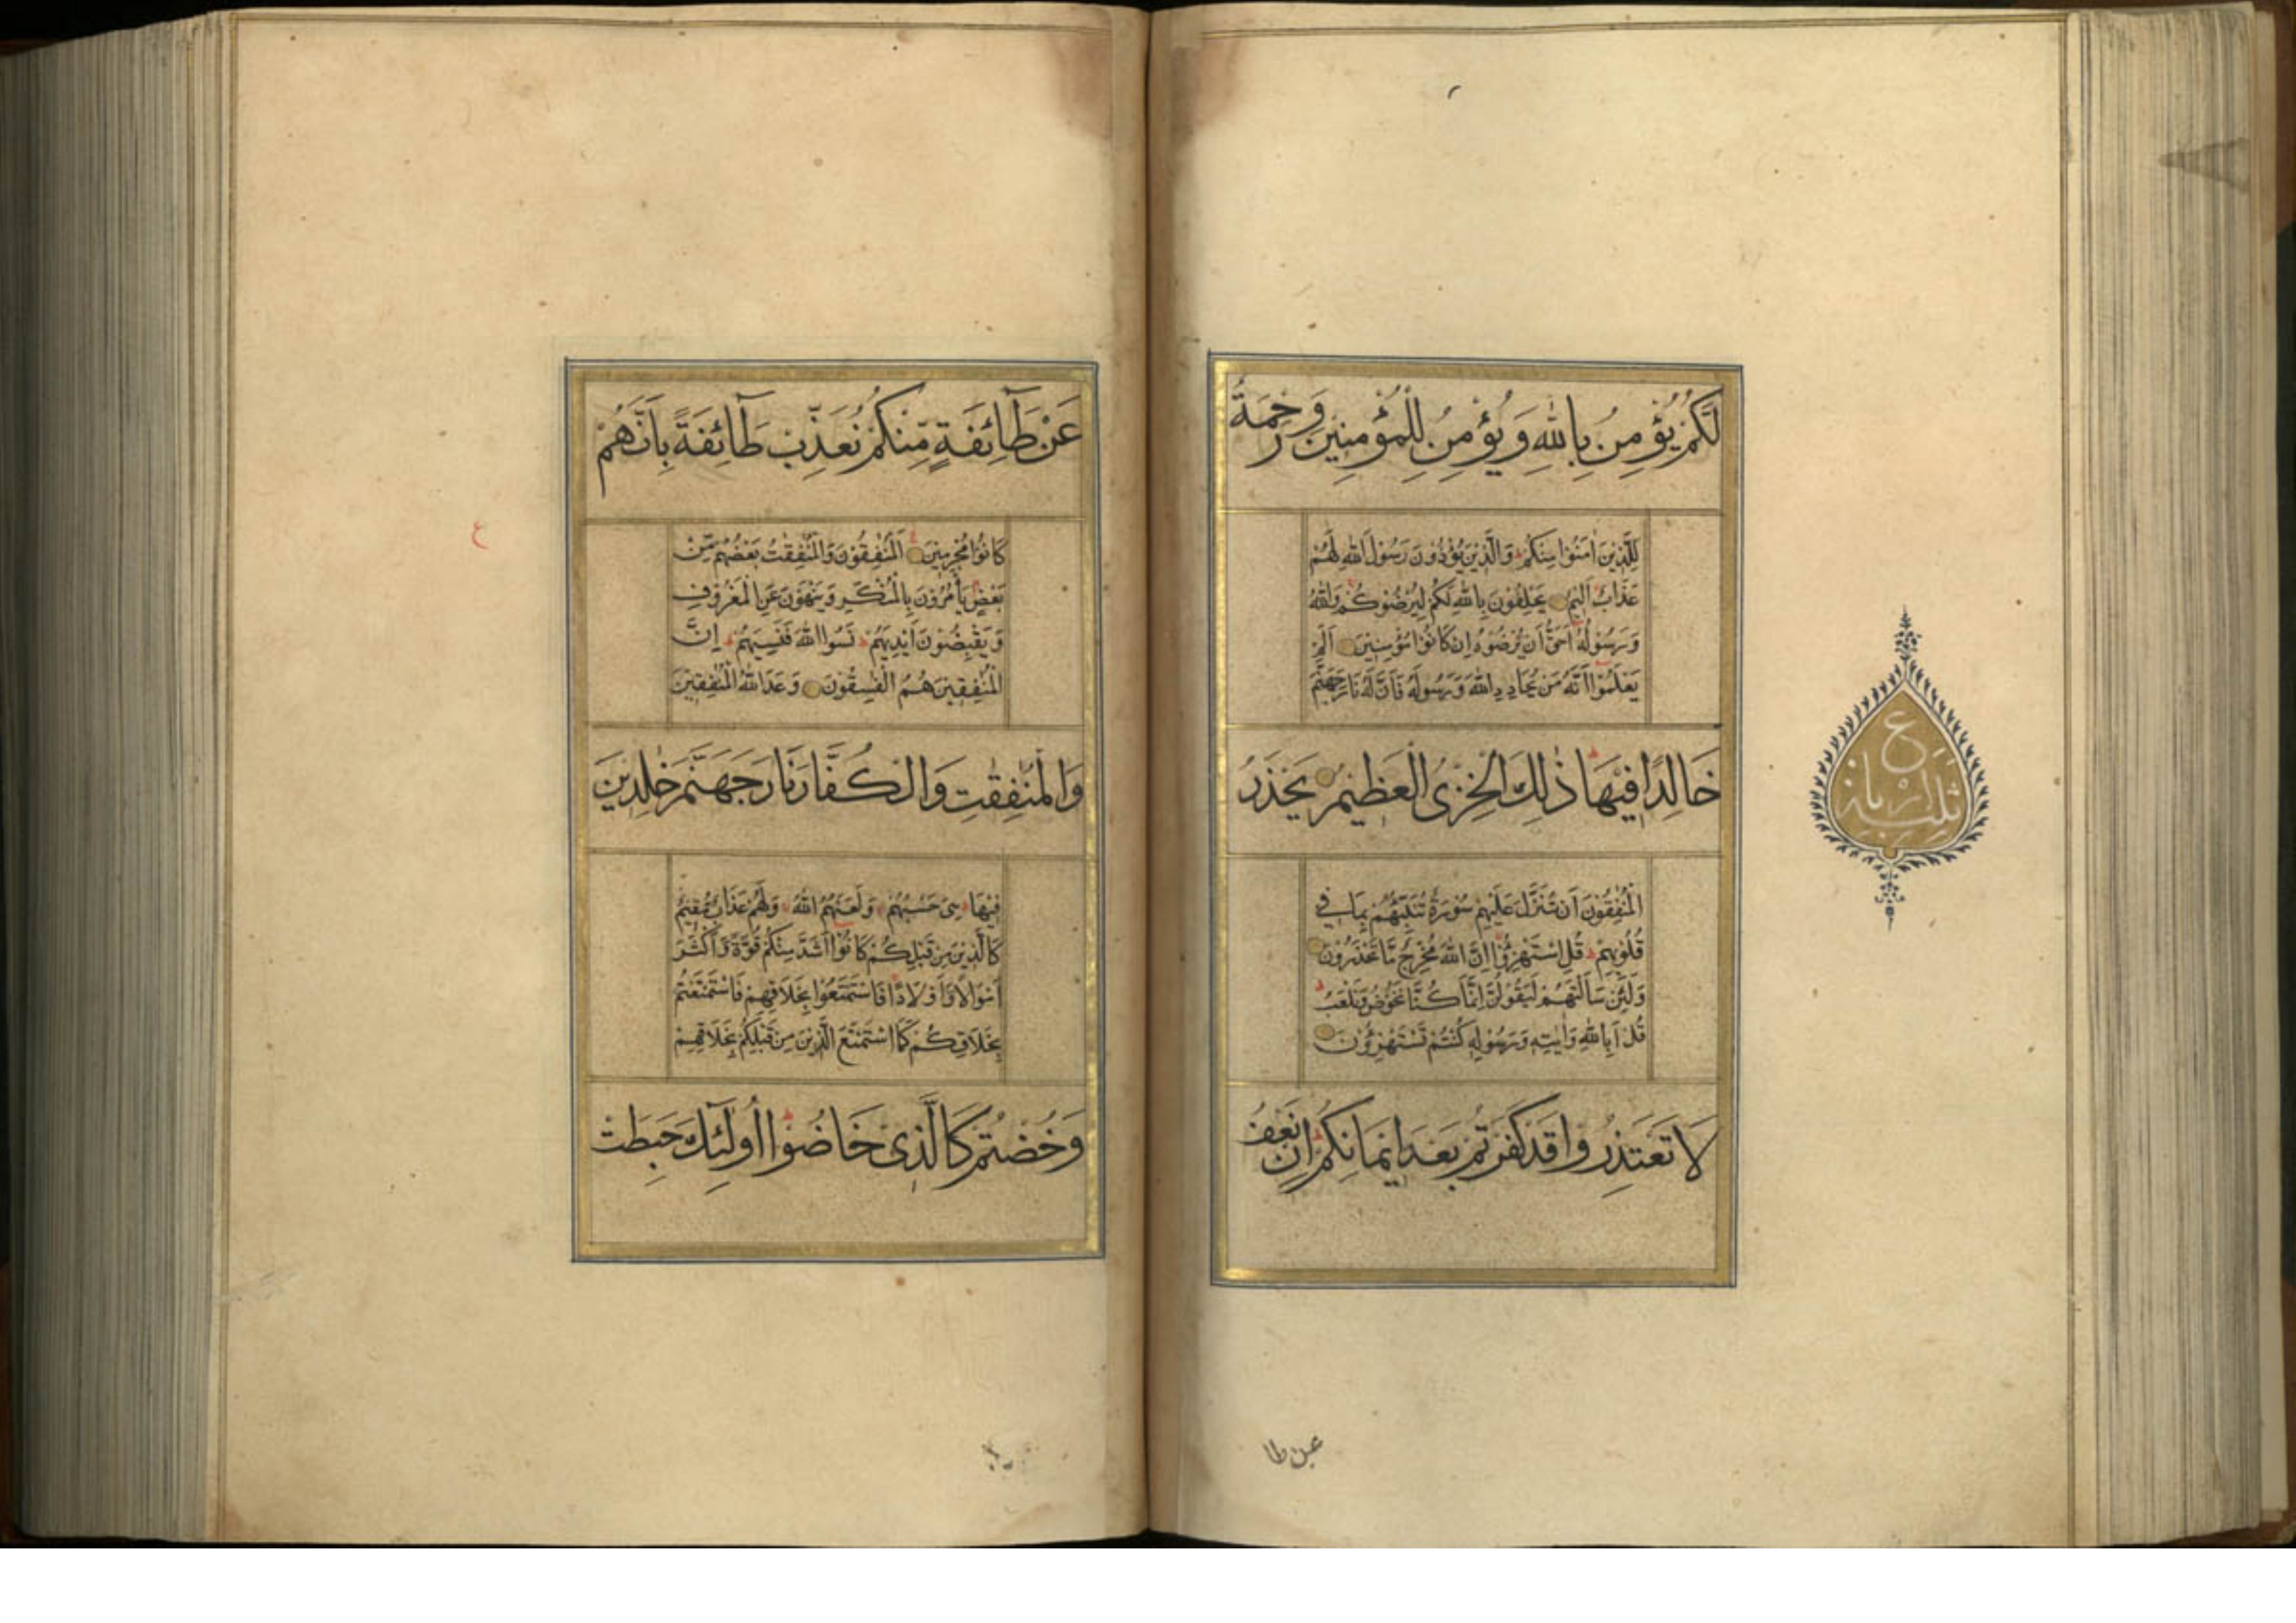 لَّكُمْ يُؤْمِنُ بِاللهِ وَيُؤْمِنُ لِلْمُؤْمِنِينَ وَرَحْمَةٌ
لِلَّذِينَ اٰمَنُوْا مِنْكُمْ وَالَّذِيْنَ يُؤْذُوْنَ رَسُوْلَ اللهِ لَهُمْ
عَذَابٌ اَلِيْمٌ يَحْلِفُوْنَ بِاللهِ لَكُمْ لِيُرْضُوْكُمْ وَاللهُ
وَرَسُوْلُهٗ اَحَقُّ اَنْ يُرْضُوْهُ اِنْ كَانُوْا مُؤْمِنِيْنَ اَلَمْ
يَعْلَمُوْا اَنَّهٗ مَنْ يُحَادِدِ اللهَ وَرَسُوْلَهٗ فَاَنَّ لَهٗ نَارَ جَهَنَّمَ
خَالِدًا فِيْهَا ذٰلِكَ الْخِزْىُ الْعَظِيْمُ يَحْذَرُ
الْمُنٰفِقُوْنَ اَنْ تُنَزَّلَ عَلَيْهِمْ سُوْرَةٌ تُنَبِّئُهُمْ بِمَا فِي
قُلُوْبِهِمْ قُلِ اسْتَهْزِؤُا اِنَّ اللهَ مُخْرِجٌ مَّا تَحْذَرُوْنَ
وَلَئِنْ سَاَلْتَهُمْ لَيَقُوْلُنَّ اِنَّمَا كُنَّا نَخُوْضُ وَنَلْعَبُ
قُلْ اَبِاللهِ وَاٰيٰتِهٖ وَرَسُوْلِهٖ كُنْتُمْ تَسْتَهْزِؤُنَ
لَا تَعْتَذِرُوا قَدْ كَفَرْتُمْ بَعْدَ اِيْمَانِكُمْ اِنْ نَعْفُ
ع
ثلثة ارباع
عن طا
عَنْ طَآئِفَةٍ مِّنْكُمْ نُعَذِّبْ طَآئِفَةً بِاَنَّهُمْ
كَانُوْا مُجْرِمِيْنَ اَلْمُنٰفِقُوْنَ وَالْمُنٰفِقٰتُ بَعْضُهُمْ مِّنْ
بَعْضٍ يَأْمُرُوْنَ بِالْمُنْكَرِ وَيَنْهَوْنَ عَنِ الْمَعْرُوْفِ
وَيَقْبِضُوْنَ اَيْدِيَهُمْ نَسُوا اللهَ فَنَسِيَهُمْ اِنَّ
الْمُنٰفِقِيْنَ هُمُ الْفٰسِقُوْنَ وَعَدَ اللهُ الْمُنٰفِقِيْنَ
وَالْمُنٰفِقٰتِ وَالْكُفَّارَ نَارَ جَهَنَّمَ خٰلِدِيْنَ
فِيْهَا هِىَ حَسْبُهُمْ وَلَعَنَهُمُ اللهُ وَلَهُمْ عَذَابٌ مُّقِيْمٌ
كَالَّذِيْنَ مِنْ قَبْلِكُمْ كَانُوْا اَشَدَّ مِنْكُمْ قُوَّةً وَاَكْثَرَ
اَمْوَالًا وَاَوْلَادًا فَاسْتَمْتَعُوْا بِخَلَاقِهِمْ فَاسْتَمْتَعْتُمْ
بِخَلَاقِكُمْ كَمَا اسْتَمْتَعَ الَّذِيْنَ مِنْ قَبْلِكُمْ بِخَلَاقِهِمْ
وَخُضْتُمْ كَالَّذِىْ خَاضُوْا اُولٰئِكَ حَبِطَتْ
ع